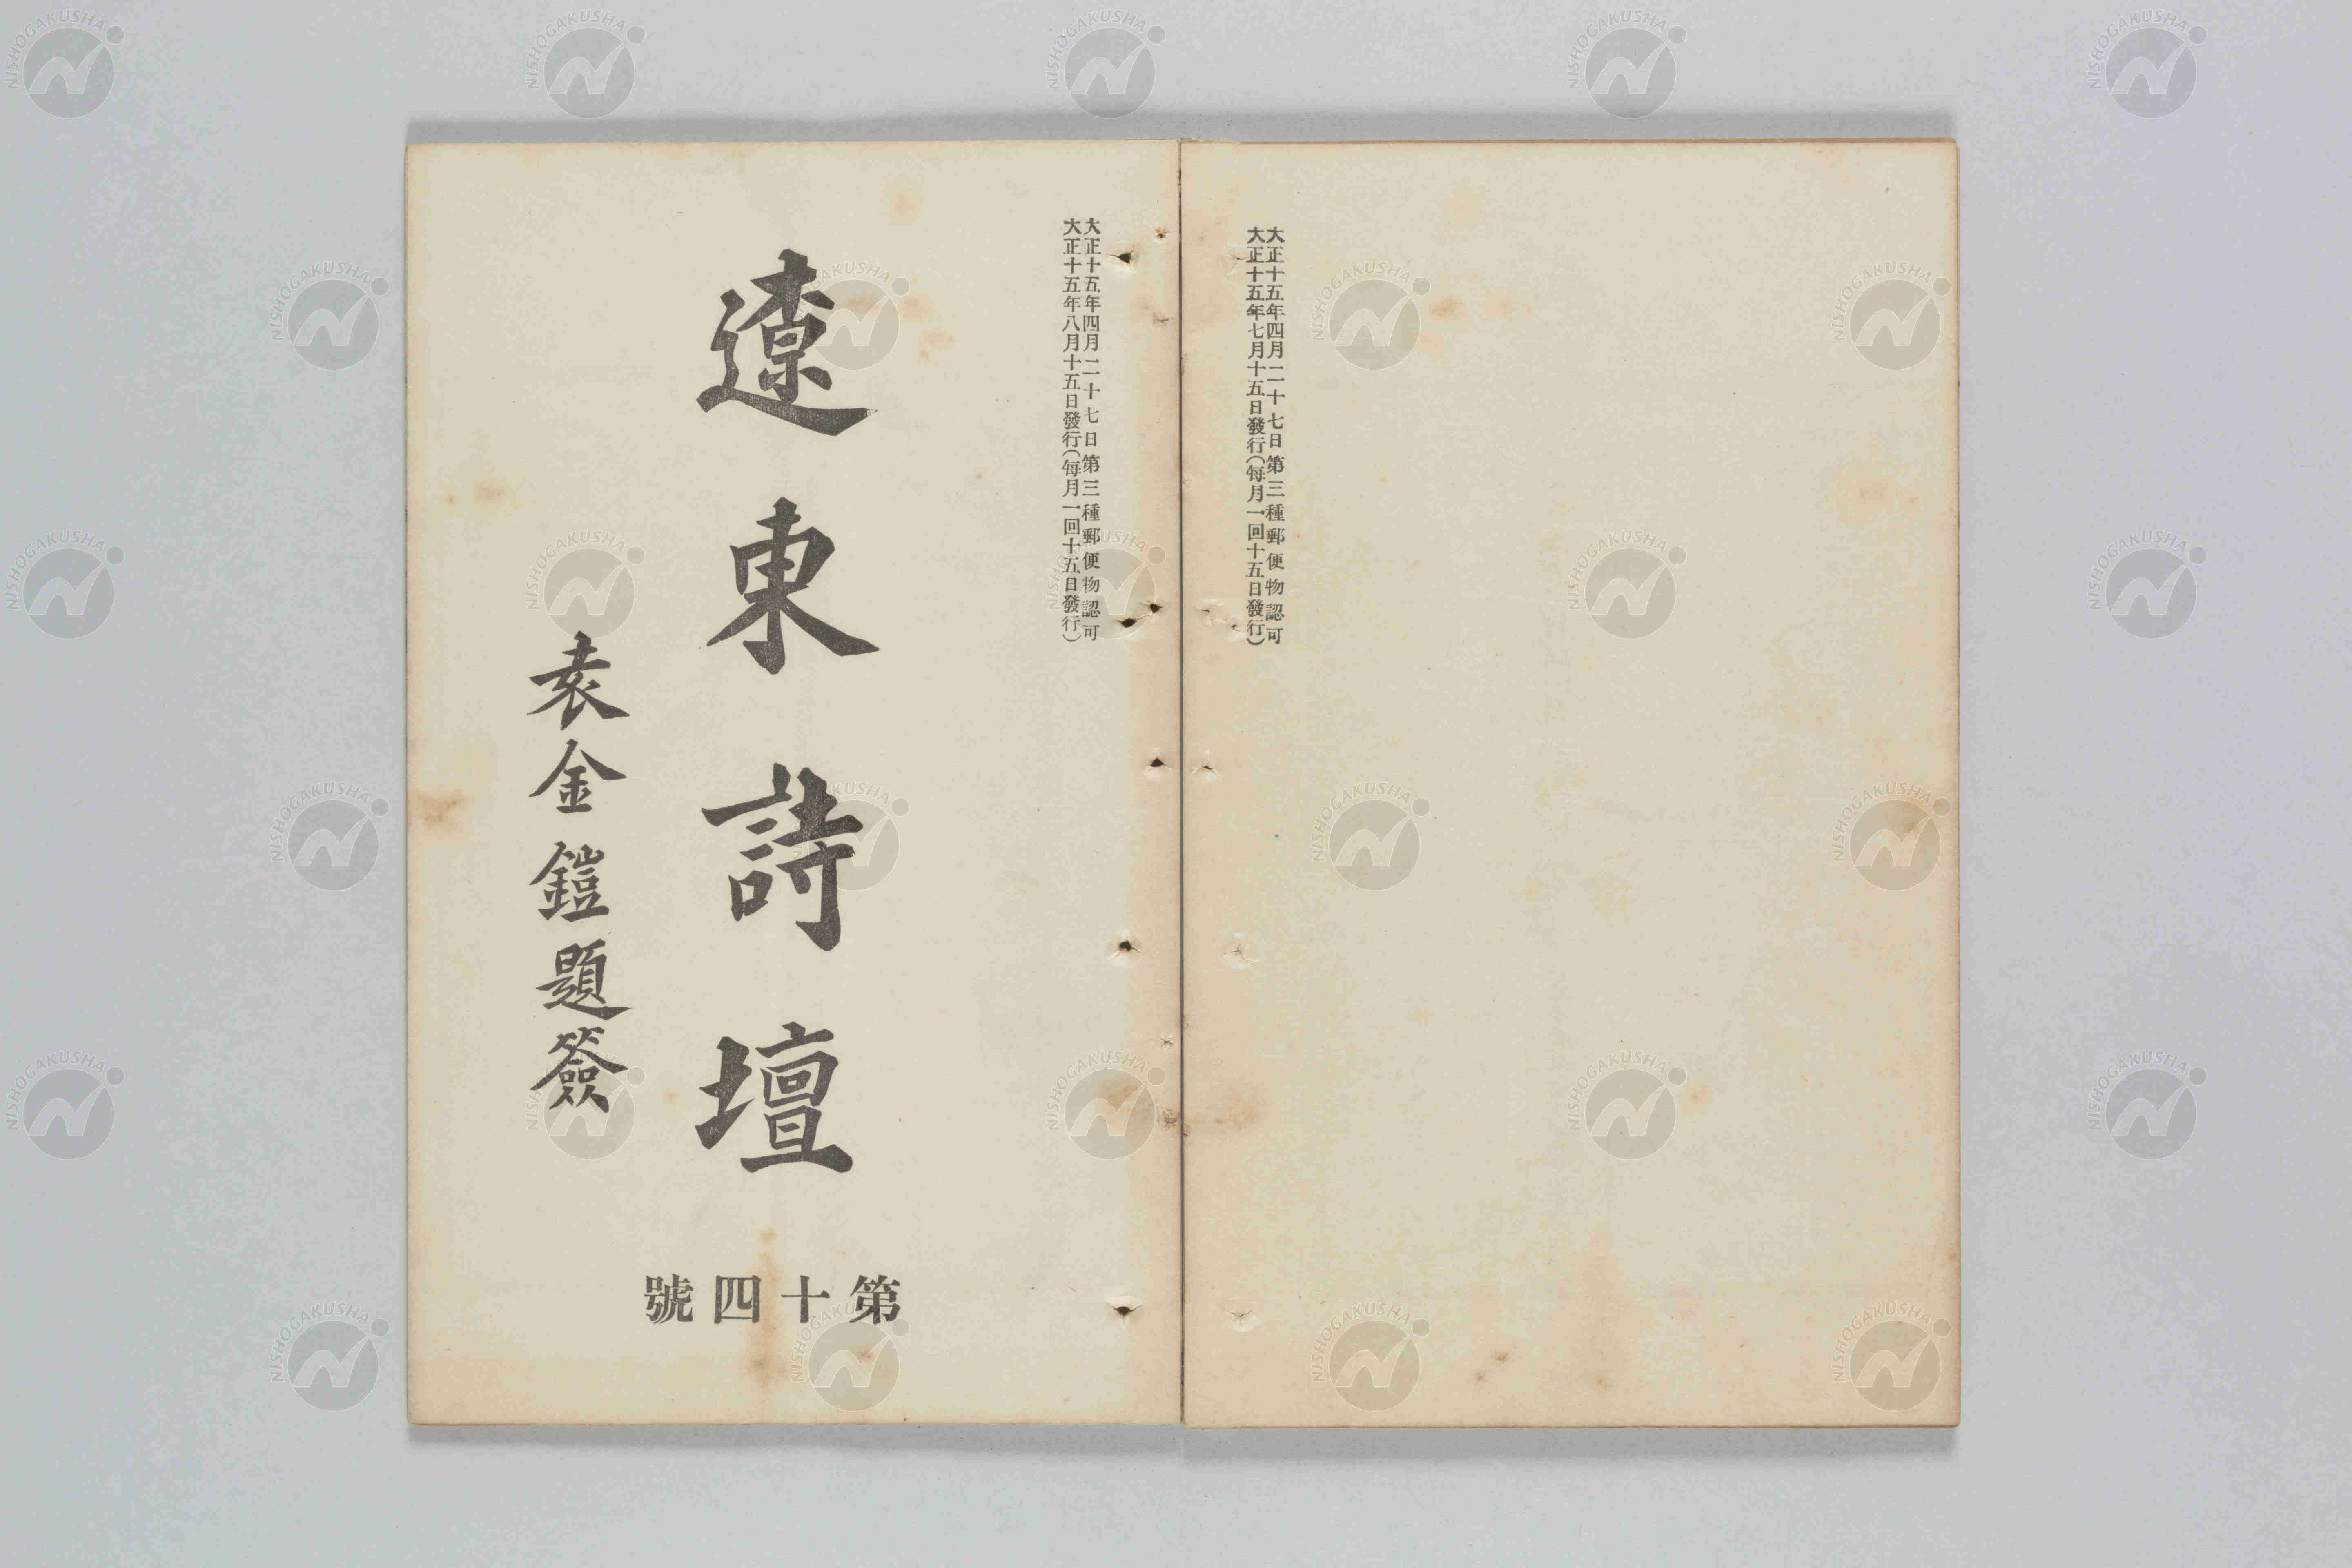 大正十五年四月二十七日第三種郵便物認可
大正十五年七月十五日發行(每月一回十五日發行)
大正十五年四月二十七日第三種郵便物認可
大正十五年八月十五日發行(每月一回十五日發行)
遼東詩壇
袁金鎧題簽
第十四號
NISHOGAKUSHA